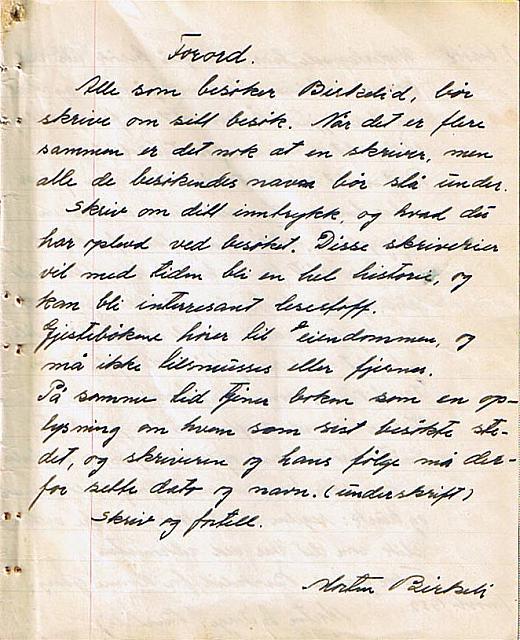 Forord.
Alle som besøker Birkelid, bør
skrive om sitt besøk. Når det er flere
sammen er det nok at en skriver, men
alle de besøkendes navn bør stå under.
Skriv om ditt inntrykk, og hvad du
har oplevd ved besøket. Disse skriverier
vil med tiden bli en hel historie, og
kan bli interesant lesestoff.
Gjestebökene hörer til Eiendommen, og
må ikke tilsmusses eller fjernes.
På samme tid tjener boken som en op-
lysning om hvem som sist besökte ste-
det, og skriveren og hans følge må der-
for sette dato og navn. (underskrift)
Skriv og fortell.
Morten Birkeli